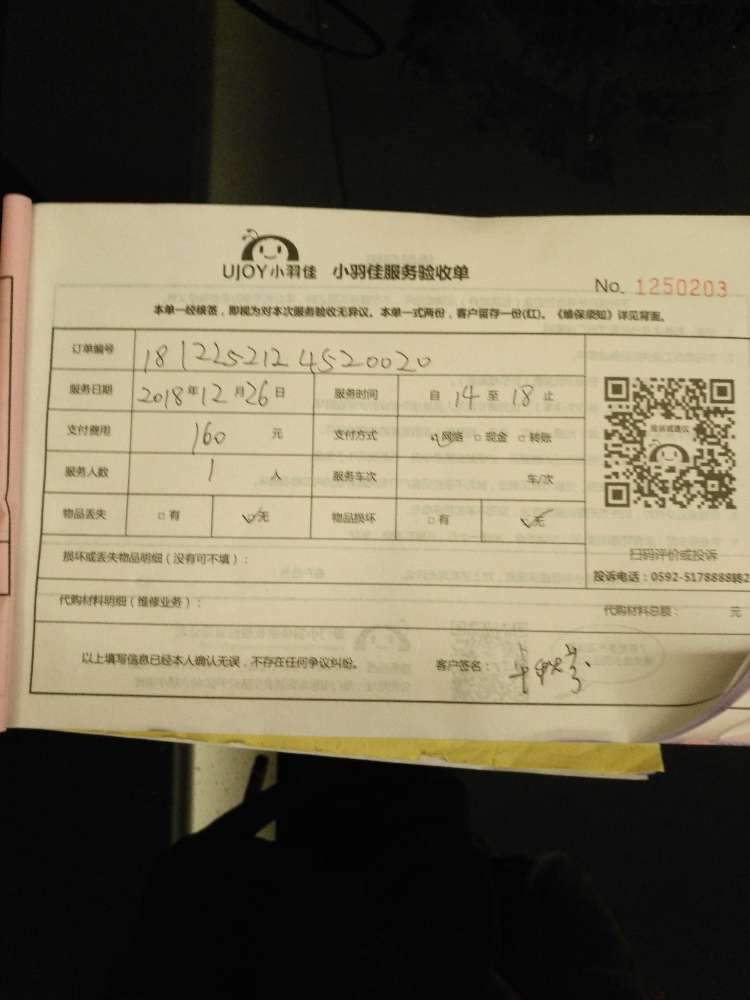 UJOY小羽佳 小羽佳服务验收单
No. 1250203
本单一经核签，即视为对本次服务验收无异议。本单一式两份，客户留存一份(红)。《维保须知》详见背面。
订单编号 1812252124520020
服务日期 2018年12月26日 服务时间 自 14 至 18 止
支付费用 160 元 支付方式 ☑网络 □现金 □转账
投诉或建议
服务人数 1 人 服务车次 车/次
物品丢失 □有 ☑无 物品损坏 □有 ☑无
扫码评价或投诉
损坏或丢失物品明细（没有可不填）：
投诉电话：0592-5178888转2
代购材料明细（维修业务）： 代购材料总额： 元
以上填写信息已经本人确认无误，不存在任何争议纠纷。 客户签名：